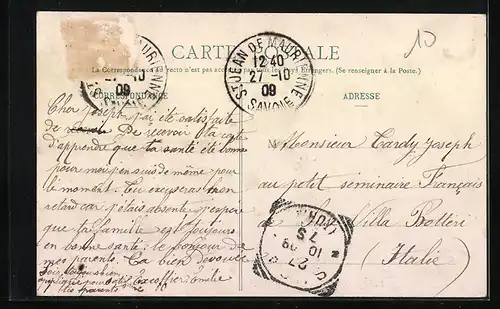 CARTE POSTALE
La Correspondance au recto n'est pas acceptée par tous les pays Etrangers. (Se renseigner à la Poste.)
CORRESPONDANCE
ADRESSE
ST JEAN DE MAURIENNE
12 40
27 - 10
09
SAVOIE
10
Cher Joseph j'ai été satisfaite
de De recevoir ta carte
d'apprendre que ta santé été bonne
pour moi j'en suis de même pour
le moment. Tu excuseras mon
retard car j'étais absente j'espère
que ta famille est toujours
en bonne santé. le bonjour de
mes parents. Ta bien dévouée
Excoffier Emilie
Monsieur Tardy Joseph
au petit séminaire Français
Villa Botteri
(Italie)
7 S
27 10 09